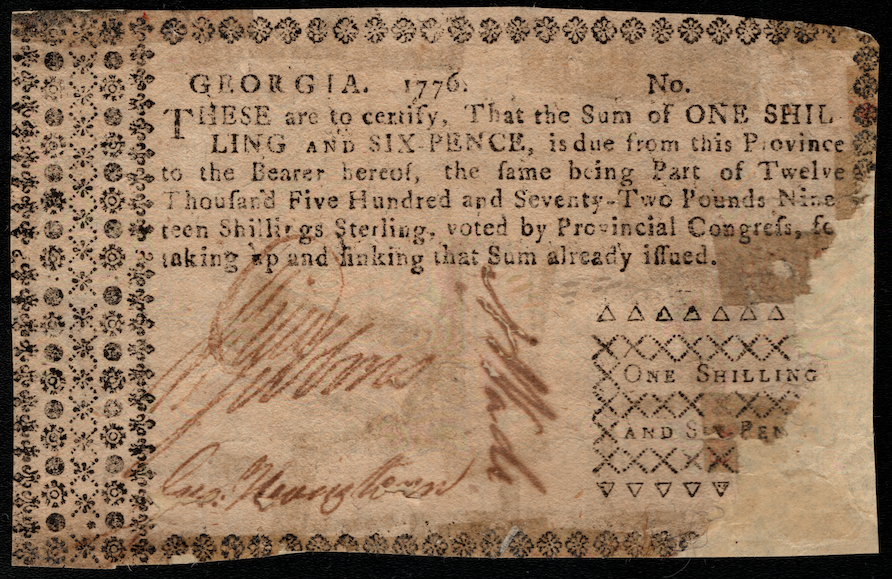 GEORGIA. 1776. No.
THESE are to certify, That the Sum of ONE SHIL-
LING AND SIX-PENCE, is due from this Province
to the Bearer hereof, the ſame being Part of Twelve
Thouſand Five Hundred and Seventy-Two Pounds Nine
teen Shillings Sterling, voted by Provincial Congreſs, fo
taking up and ſinking that Sum already iſſued.
ONE SHILLING
AND SIX PEN